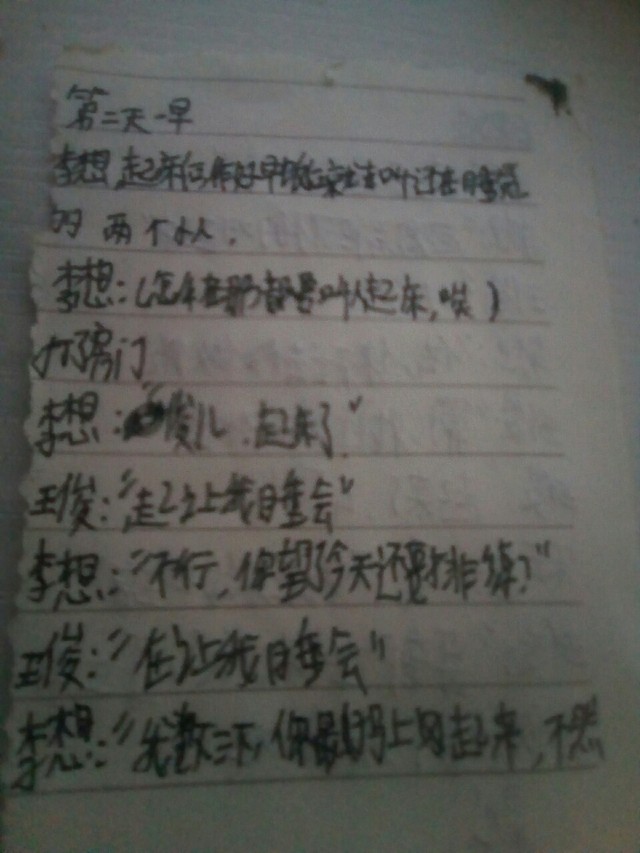 第二天一早
李想起来做好早饭后来去叫还在睡觉
的两个人.
李想:(怎么在那都要叫人起床,唉)
打开房门
李想:"俊儿.起床了"
王俊:"走了让我睡会"
李想:"不行,你忘了今天还要排练?"
王俊:"在让我睡会"
李想:"我数三下,你最好马上给起来,不然